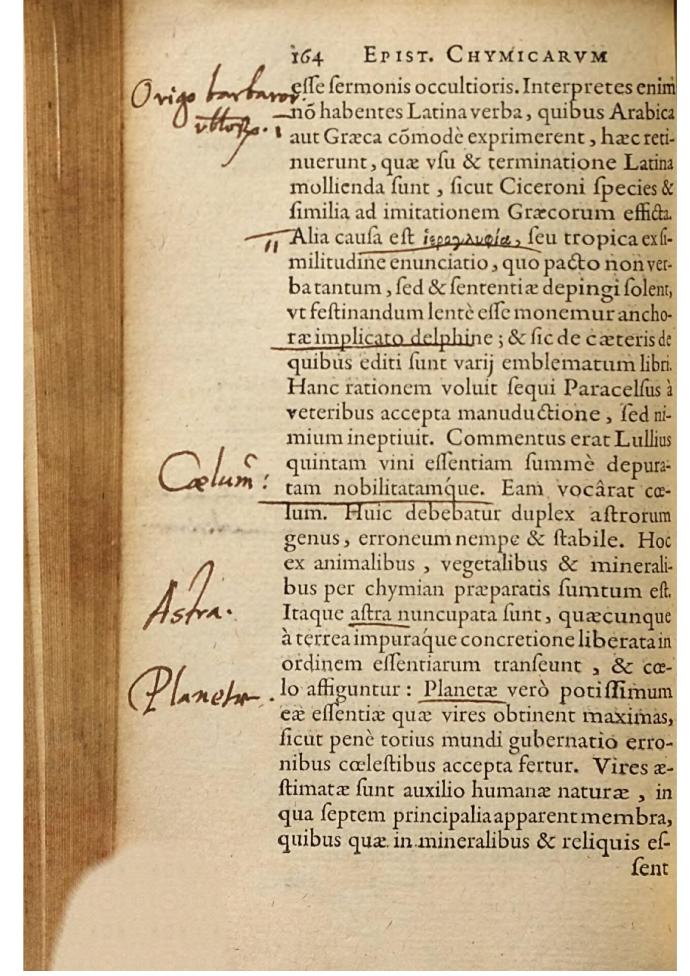 164 EPIST. CHYMICARVM
Origo barbaror.
esse sermonis occultioris. Interpretes enim
nõ habentes Latina verba, quibus Arabica
aut Græca cõmodè exprimerent, hæc reti-
nuerunt, quæ vsu & terminatione Latina
mollienda sunt, sicut Ciceroni species &
similia ad imitationem Græcorum efficta.
Alia causa est ἱερογλυφία, seu tropica ex si-
militudine enunciatio, quo pacto non ver-
ba tantum, sed & sententiæ depingi solent,
vt festinandum lentè esse monemur ancho-
ræ implicato delphine; & sic de cæteris de
quibus editi sunt varij emblematum libri.
Hanc rationem voluit sequi Paracelsus à
veteribus accepta manuductione, sed ni-
mium ineptiuit. Commentus erat Lullius
quintam vini essentiam summè depura-
Cœlum:
tam nobilitatamq́ue. Eam vocârat cœ-
lum. Huic debebatur duplex astrorum
genus, erroneum nempe & stabile. Hoc
ex animalibus, vegetalibus & minerali-
bus per chymian præparatis sumtum est.
Astra.
Itaque astra nuncupata sunt, quæcunque
à terrea impuraq́ue concretione liberata in
ordinem essentiarum transeunt, & cœ-
Planetæ.
lo affiguntur: Planetæ verò potissimum
eæ essentiæ quæ vires obtinent maximas,
sicut penè totius mundi gubernatio erro-
nibus cœlestibus accepta fertur. Vires æ-
stimatæ sunt auxilio humanæ naturæ, in
qua septem principalia apparent membra,
quibus quæ in mineralibus & reliquis es-
sent